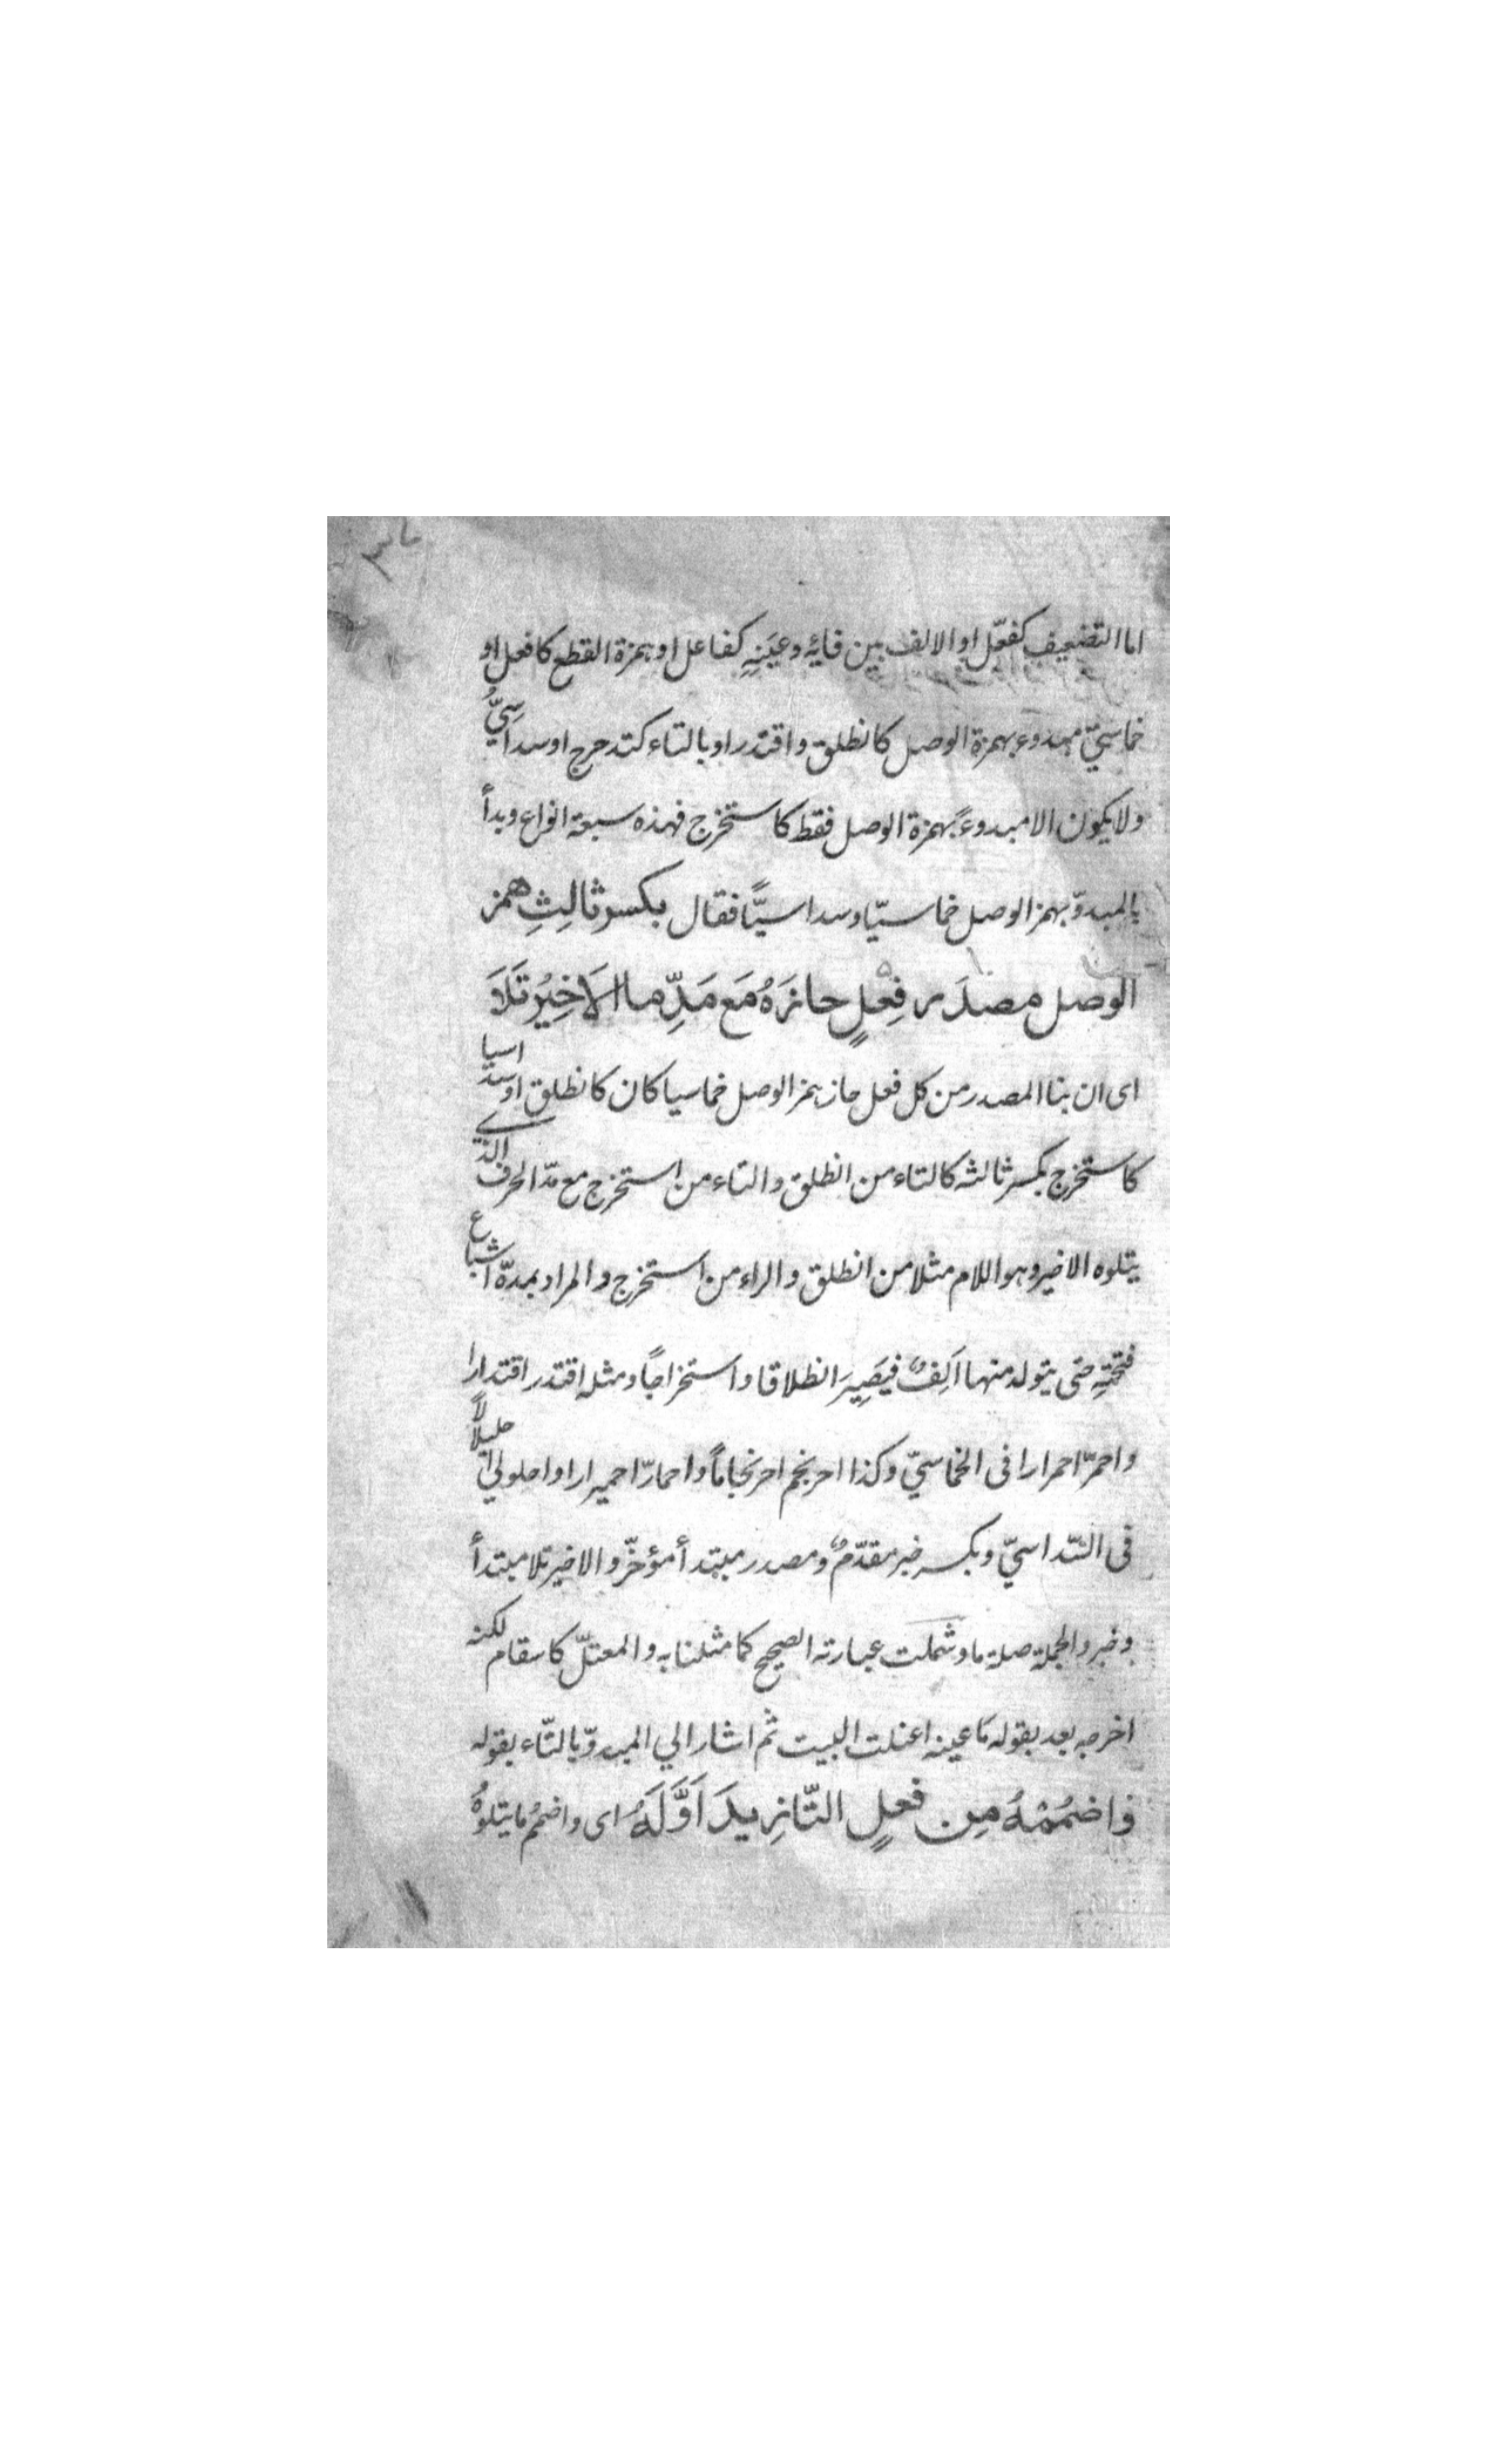 اما التضعيف كفعّل او الالف بين فائه وعينِهِ كفاعل او بهمزة القطع كافعل او
خماسيّ مبدوء بهمزة الوصل كانطلق واقتدر او بالتاء كتدحرج او سداسيٌّ
ولا يكون الا مبدوءً بهمزة الوصل فقط كاستخرج فهذه سبعة انواع وبدأ
بالمبدوّ بهمز الوصل خماسيّا وسداسيًّا فقال بكسر ثالِثِ همز
الوصل مصدَر فِعلٍ حازَهُ مَع مَدِّ ما الاَخِيُر تَلاَ
اى ان بنا المصدر من كل فعل حاز همز الوصل خماسيا كان كانطلق او سداسيا
كاستخرج بكسر ثالثه كالتاء من انطلق والتاء من استخرج مع مدّ الحرف الذي
يتلوه الاخير وهو اللام مثلا من انطلق والراء من استخرج والمراد بمدّه اشباع
فتحتِهِ حتى يتولد منها اَلِفٌ فيَصِيرَ انطلاقا واستخراجًا ومثله اقتدر اقتدارا
واحمرّ احمرارا فى الخماسيّ وكذا احرنجم احرنجامًا واحمارّ احميرارا واحلولي احليلاًلا
فى السّداسيّ وبكسر خبر مقدّمٌ ومصدر مبتدأ مؤخّر والاخير تلا مبتدأ
وخبر والجملة صلة ما وشملت عبارته الصحيح كما مثلنا به والمعتلّ كاستقام لكنه
اخرجه بعد بقوله مَا عينه اعتلت البيت ثم اشار الي المبدوّ بالتّاء بقوله
واضمُمْهُ مِن فعلٍ التّا زِيدَ اَوَّلَهُ اى واضمُم ما يتلوهُ